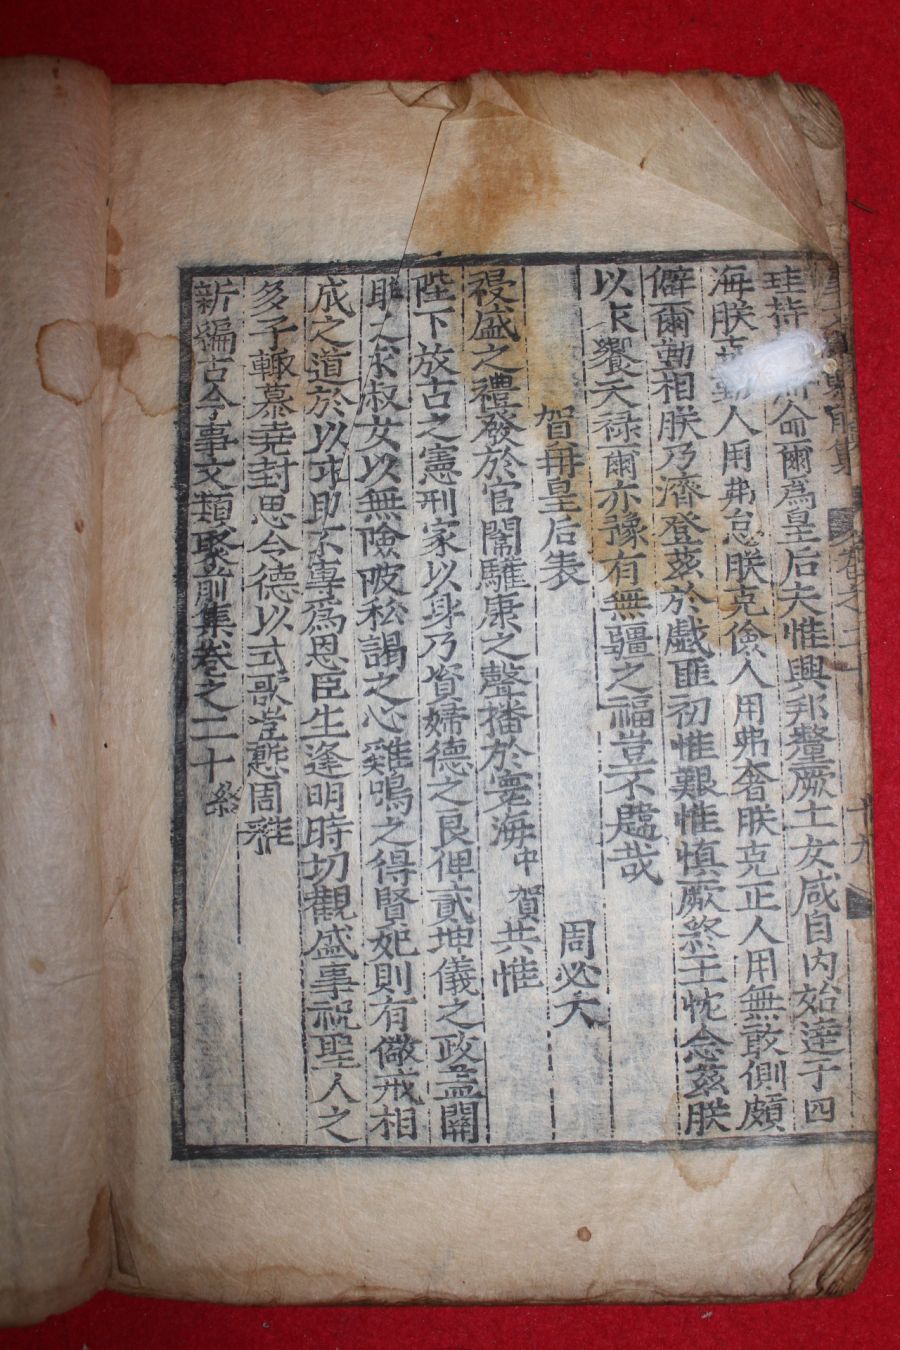 命爾爲皇后夫惟興邦釐厥士女咸自內始達于四
海朕 人用弗怠朕克儉人用弗奢朕克正人用無敢側頗
僻爾勖相朕乃濟登玆於戲匪初惟艱惟愼厥終王忱念玆朕
以 饗天禄爾亦豫有無疆之福豈不韙哉
賀冊皇后表 周必大
禮盛之禮發於官闈驩康之聲播於寰海中賀共惟
陛下放古之憲刑家以身乃資婦德之良俾貳坤儀之政盖關
雎之求淑女以無險陂私謁之心雞鳴之得賢妃則有儆戒相
成之道於以 助不專爲恩臣生逢明時切觀盛事祝聖人之
多子輙慕堯封思令德以式歌豈慙周雅
新編古今事文類聚前集卷之二十 終